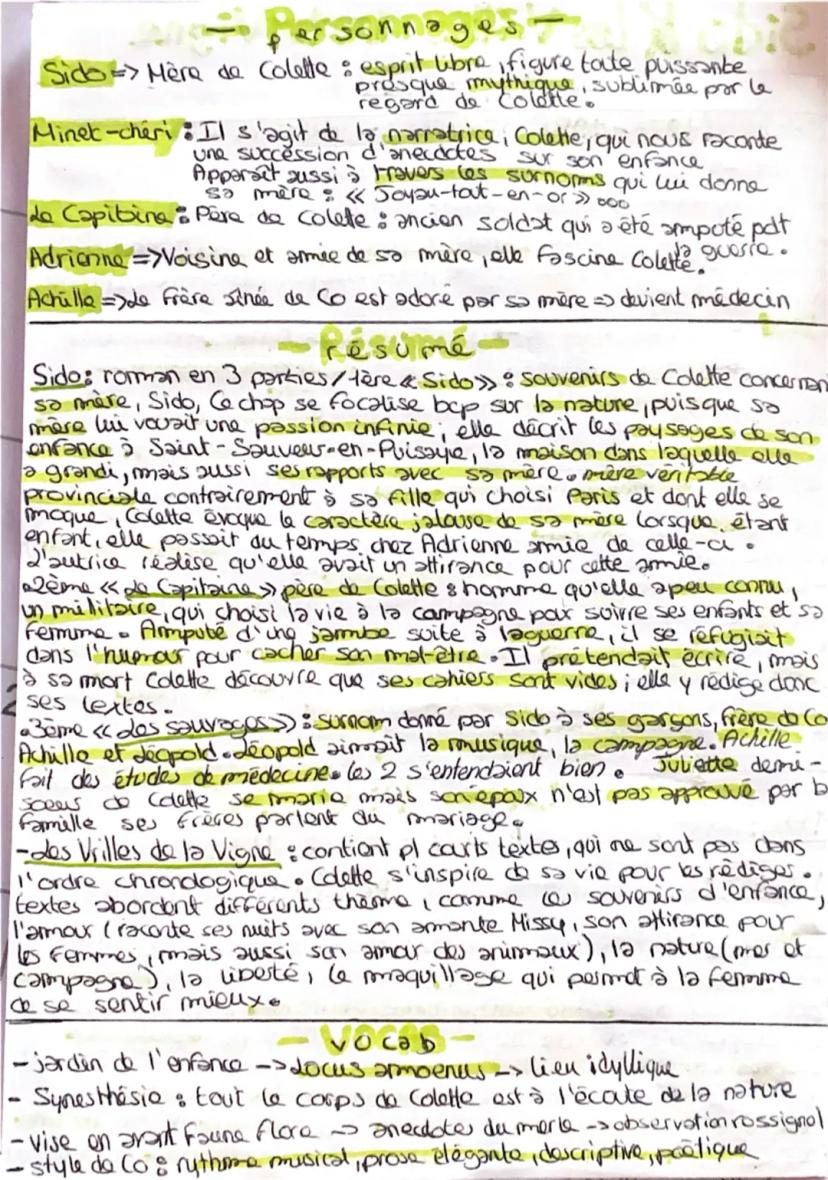 - Personnages -
Sido => Mère de Colette : esprit libre, figure toute puissante
presque mythique, sublimée par le
regard de Colette.
Minet-chéri : Il s'agit de la narratrice, Colette, qui nous raconte
une succession d'anecdotes sur son enfance
Apparaît aussi à travers les surnoms qui lui donne
sa mère : « Joyau-tout-en-or » ooo
Le Capitaine : Père de Colette : ancien soldat qui a été amputé pdt
la guerre.
Adrienne => Voisine et amie de sa mère, elle fascine Colette.
Achille => Le frère aînée de Co est adoré par sa mère => devient médecin
- résumé -
Sido : roman en 3 parties / 1ère « Sido » : souvenirs de Colette concernan
sa mère, Sido, Ce chap se focalise bcp sur la nature, puisque sa
mère lui vouait une passion infinie ; elle décrit les paysages de son
enfance à Saint-Sauveur-en-Puisaye, la maison dans laquelle elle
a grandi, mais aussi ses rapports avec sa mère. mère véritable
provinciale contrairement à sa fille qui choisi Paris et dont elle se
moque, Colette évoque le caractère jalouse de sa mère lorsque, étant
enfant, elle passait du temps chez Adrienne amie de celle-ci.
L'autrice réalise qu'elle avait un attirance pour cette amie.
.2ème « Le Capitaine » père de Colette : homme qu'elle a peu connu,
un militaire, qui choisi la vie à la campagne pour suivre ses enfants et sa
femme. Amputé d'une jambe suite à la guerre, il se réfugiait
dans l'humour pour cacher son mal-être. Il prétendait écrire, mais
à sa mort Colette découvre que ses cahiers sont vides ; elle y rédige donc
ses textes.
.3ème « Les sauvages » : surnom donné par Sido à ses garçons, frère de Co
Achille et Léopold. Léopold aimait la musique, la campagne. Achille
fait des études de médecine. les 2 s'entendaient bien. Juliette demi-
soeur de Colette se marie mais son époux n'est pas approuvé par
famille ses frères parlent du mariage.
- Les Vrilles de la Vigne : contient pl courts textes, qui ne sont pas dans
l'ordre chronologique. Colette s'inspire de sa vie pour les rédiges.
textes abordent différents thème, comme les souvenirs d'enfance,
l'amour (raconte ses nuits avec son amante Missy, son attirance pour
les femmes, mais aussi son amour des animaux), la nature (mer et
campagne), la liberté, le maquillage qui permet à la femme
de se sentir mieux.
- vocab -
- jardin de l'enfance -> Locus amoenus -> lieu idyllique
- Synesthésie : tout le corps de Colette est à l'écoute de la nature
- vise en avant faune flore -> anecdotes du merle -> observation rossignol
- style de Co : rythme musical, prose élégante, descriptive, poétique